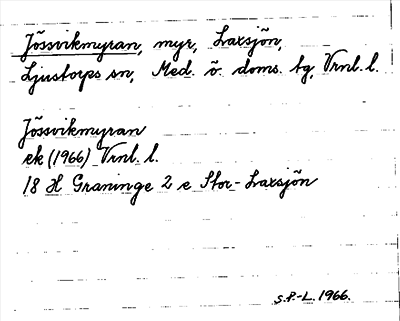 Jössvikmyran, myr, Laxsjön,
Ljustorps sn, Med. ö. doms. tg, Vrnl. l.
Jössvikmyran
ek (1966) Vrnl. l.
18 H Graninge 2 e Stor-Laxsjön
S.P-L. 1966.